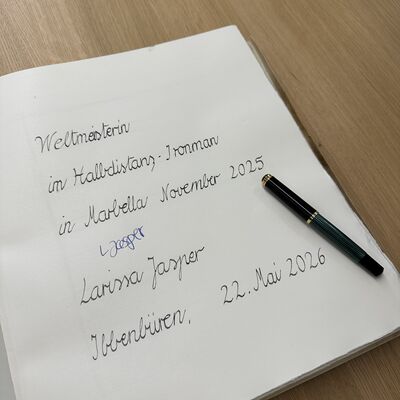 Weltmeisterin
im Halbdistanz-Ironman
in Marbella November 2025
L. Jasper
Larissa Jasper
Ibbenbüren, 22. Mai 2026